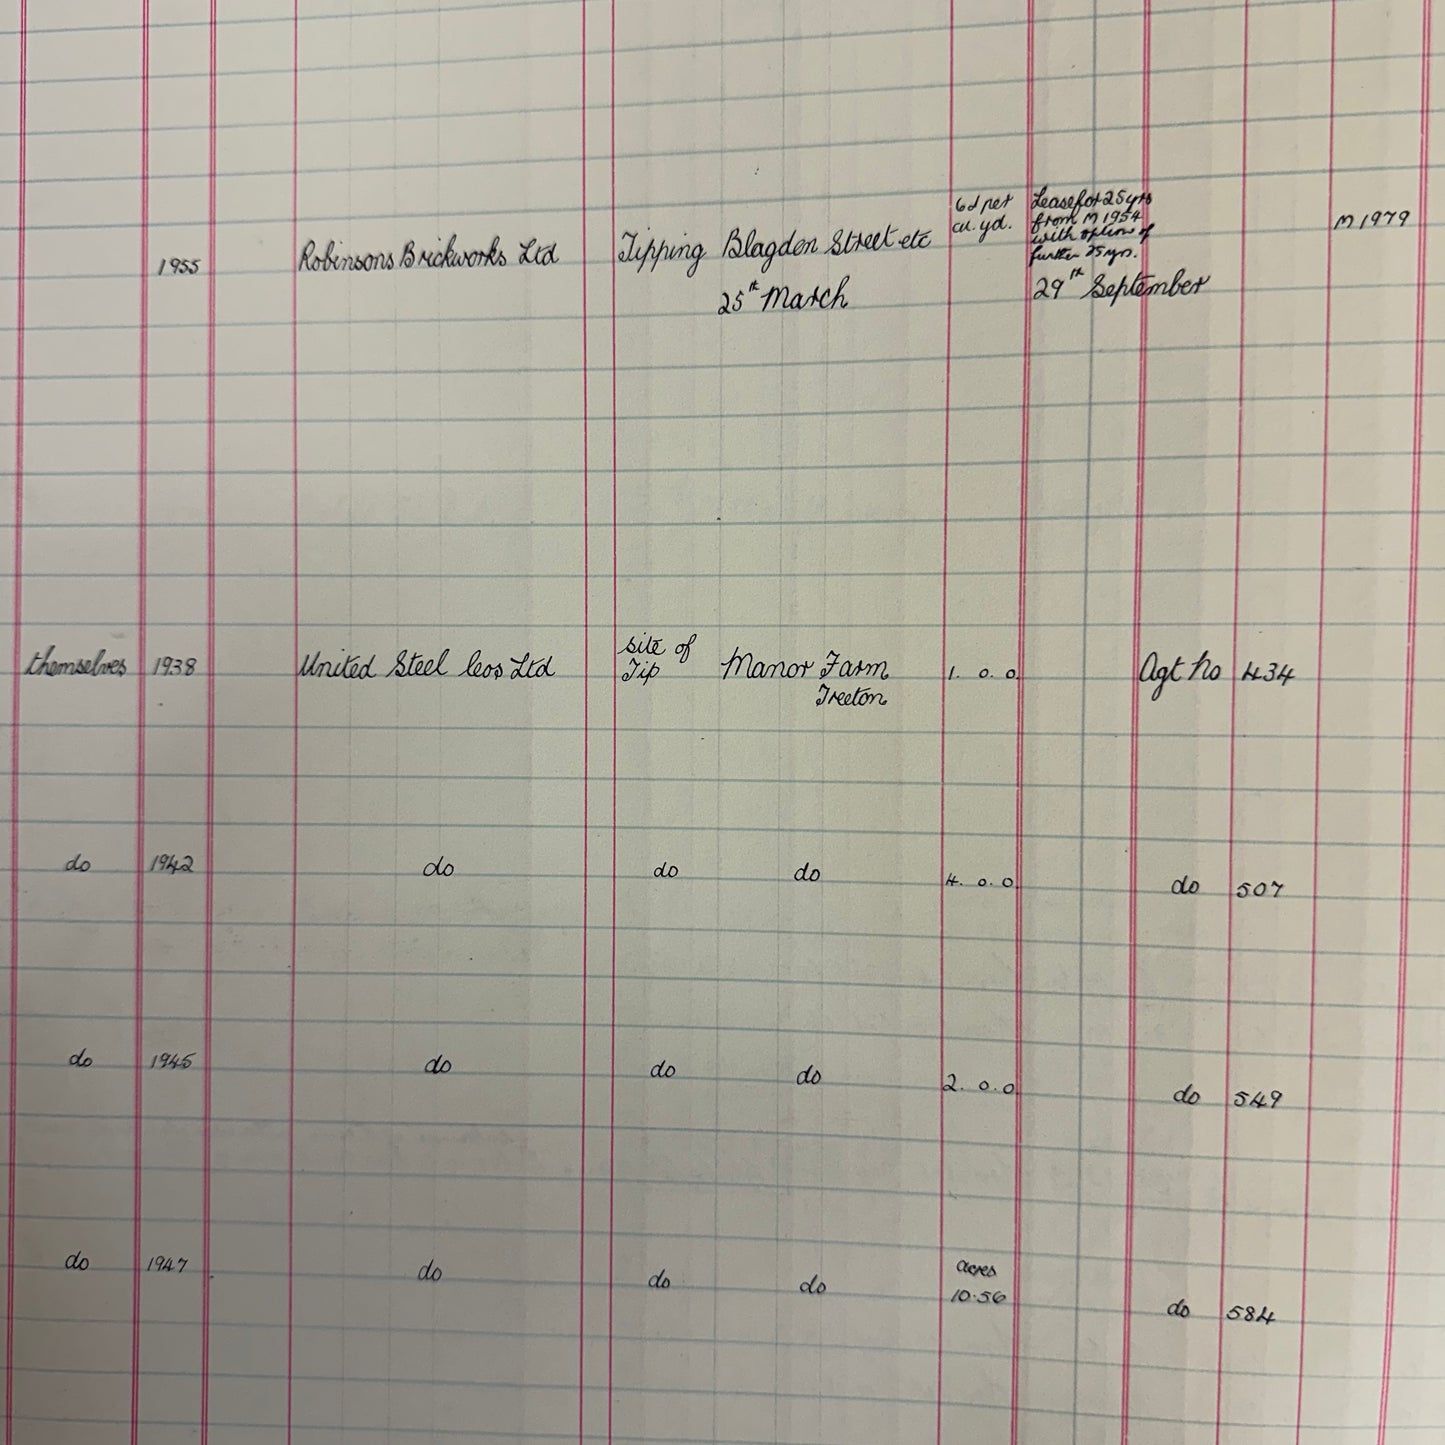 6d per
cu. yd.
Lease for 25 yrs
from M 1954
with option of
further 25 yrs.
M 1979
1955 Robinsons Brickworks Ltd Tipping Blagden Street etc
25th March 29th September
themselves 1938 United Steel Cos Ltd site of
Tip Manor Farm
Treeton 1. 0. 0 Agt No 434
do 1942 do do do 4. 0. 0 do 507
do 1945 do do do 2. 0. 0 do 549
do 1947 do do do acres
10.56 do 584